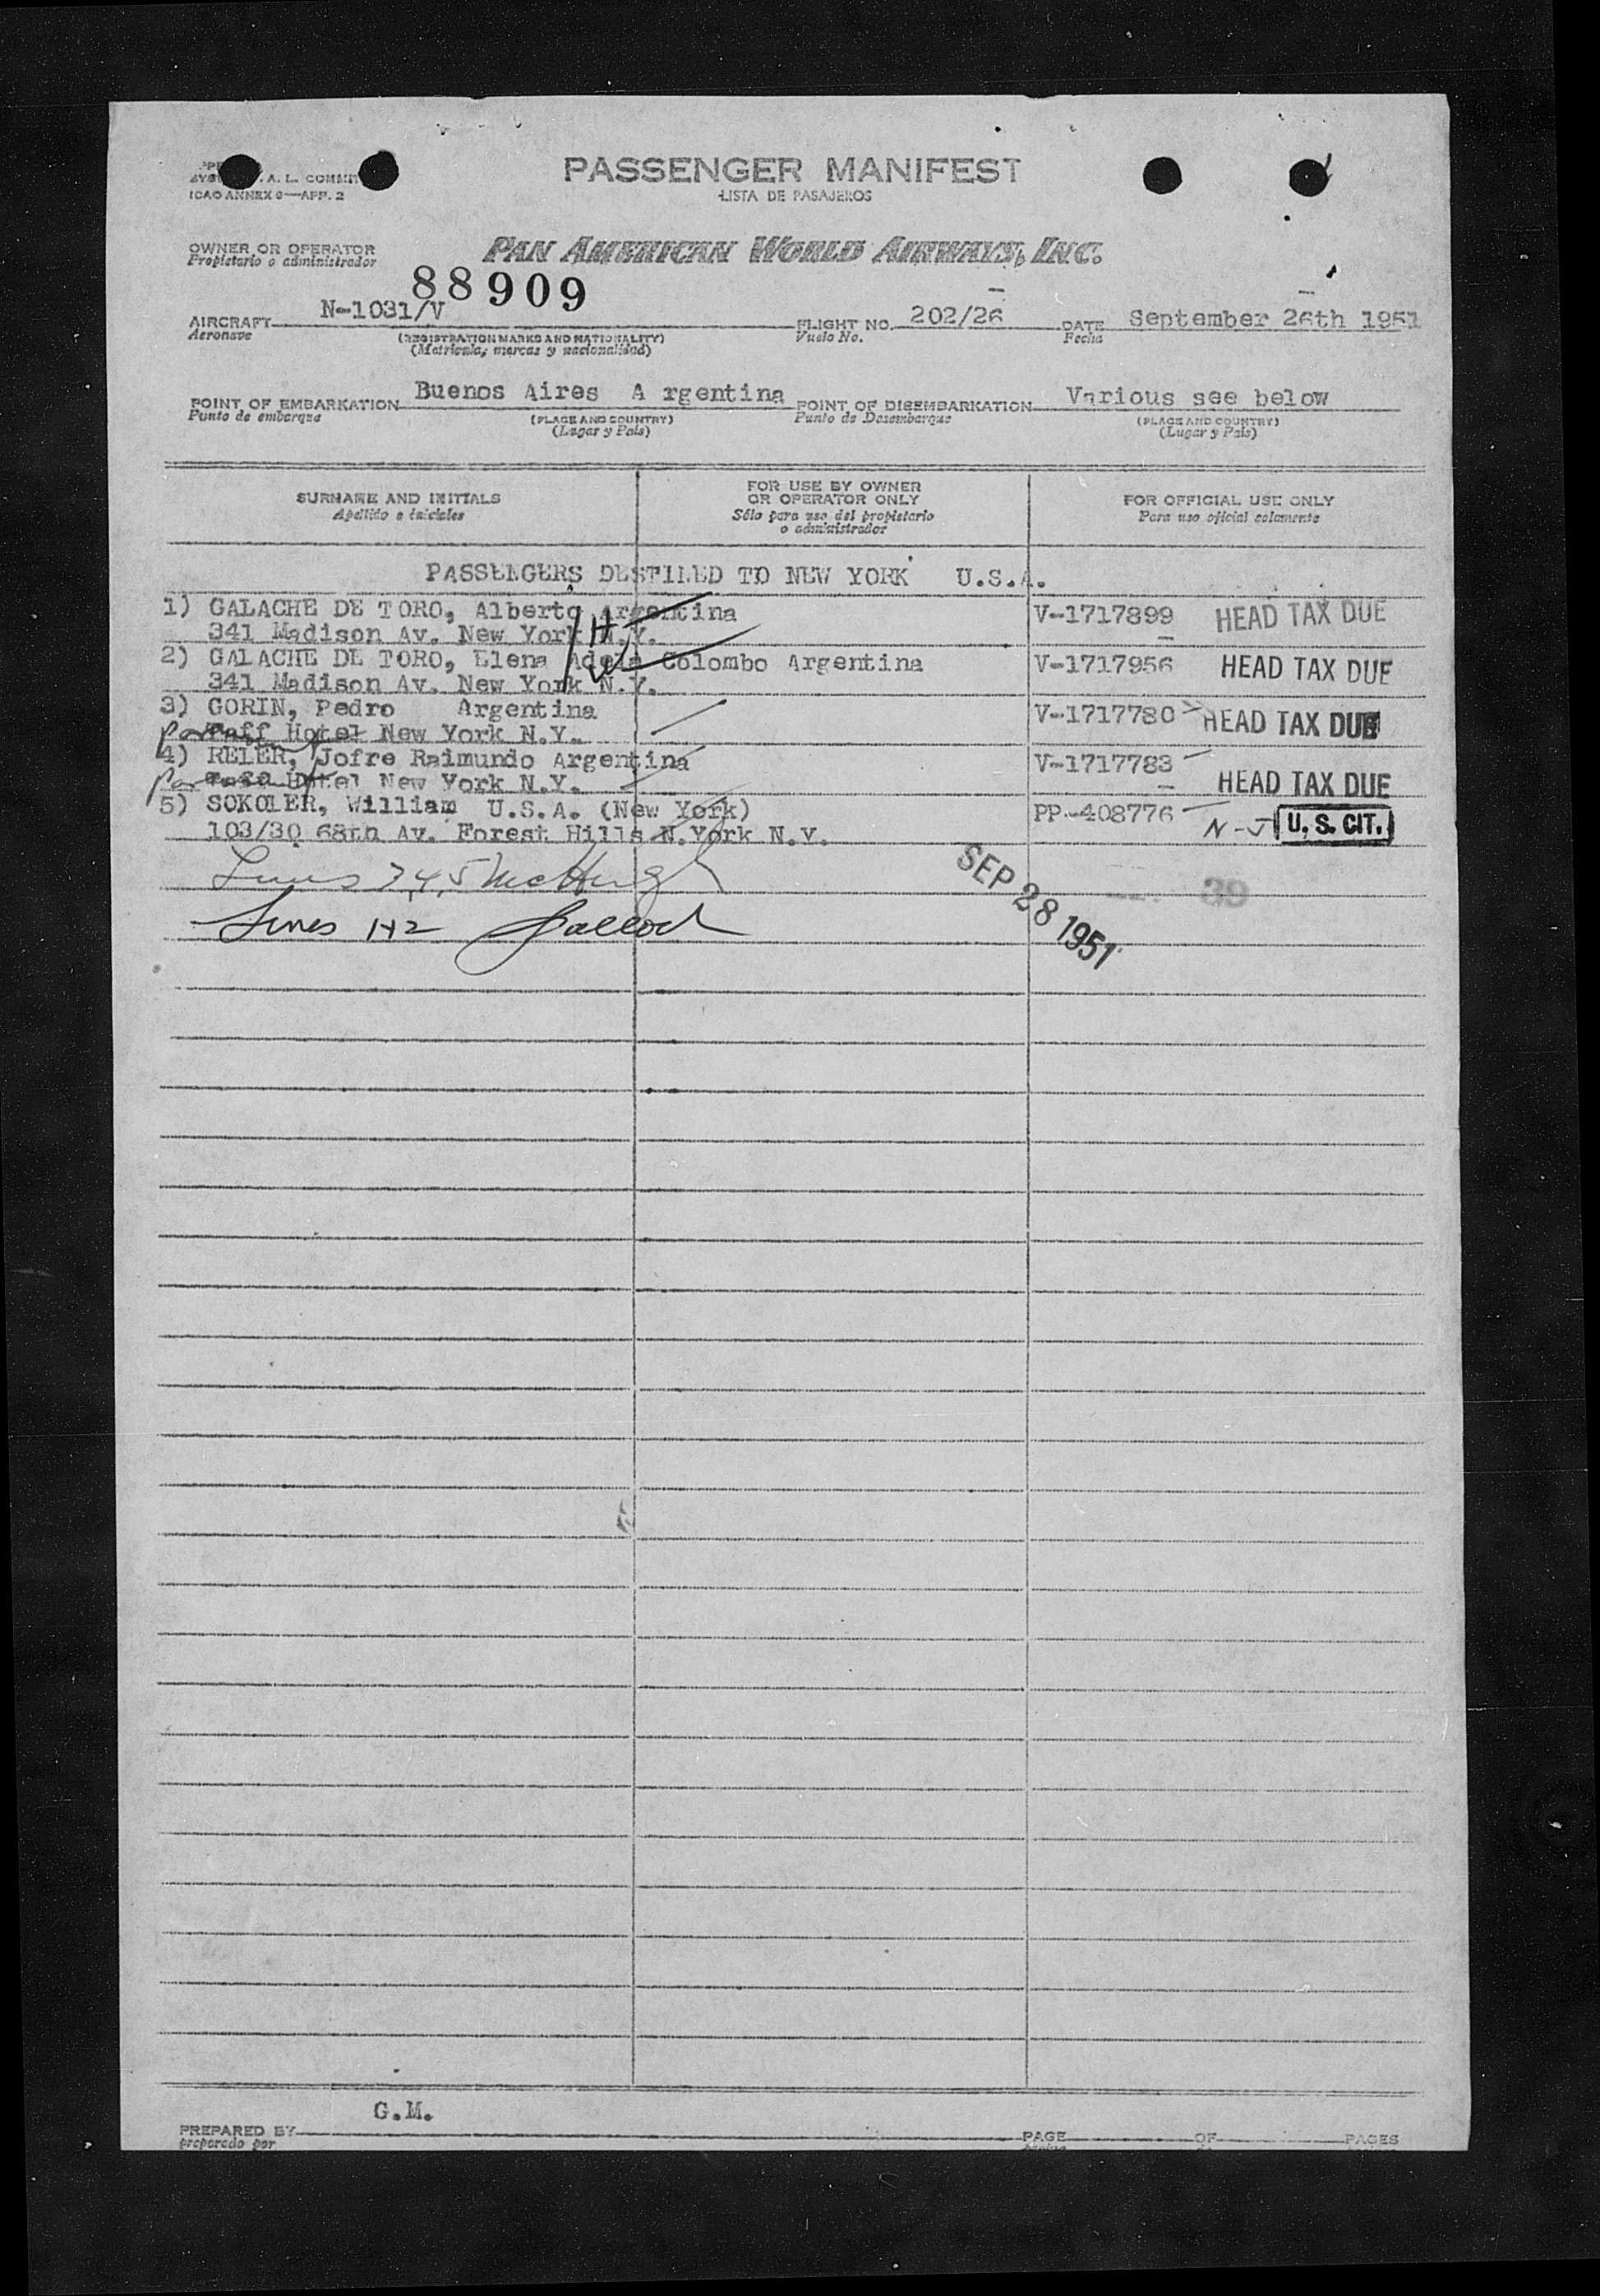 A. L. COMMIT
ICAO ANNEX 9—APP. 2
PASSENGER MANIFEST
LISTA DE PASAJEROS
OWNER OR OPERATOR
Propietario o administrador
PAN AMERICAN WORLD AIRWAYS, INC.
88909
AIRCRAFT N-1031/V FLIGHT NO. 202/26 DATE September 26th 1951
Aeronave (REGISTRATION MARKS AND NATIONALITY) Vuelo No. Fecha
(Matricula, marcas y nacionalidad)
POINT OF EMBARKATION Buenos Aires A rgentina POINT OF DISEMBARKATION Various see below
Punto de embarque (PLACE AND COUNTRY) Punto de Desembarque (PLACE AND COUNTRY)
(Lugar y Pais) (Lugar y Pais)
SURNAME AND INITIALS
Apellido e iniciales
FOR USE BY OWNER
OR OPERATOR ONLY
Sólo para uso del propietario
o administrador
FOR OFFICIAL USE ONLY
Para uso oficial solamente
PASSENGERS DESTINED TO NEW YORK U.S.A.
1) GALACHE DE TORO, Alberto Argentina V-1717899 HEAD TAX DUE
341 Madison Av. New York N.Y.
2) GALACHE DE TORO, Elena Adela Colombo Argentina V-1717956 HEAD TAX DUE
341 Madison Av. New York N.Y.
3) GORIN, Pedro Argentina V-1717780 HEAD TAX DUE
Taff Hotel New York N.Y.
4) RELER, Jofre Raimundo Argentina V-1717783
Hotel New York N.Y. HEAD TAX DUE
5) SOKOLER, William U.S.A. (New York) PP-408776
103/30 68th Av. Forest Hills N.York N.Y. N-J U.S. CIT.
Lines 3,4,5 McHugh
SEP 28 1951
39
Lines 1+2
G.M.
PREPARED BY PAGE OF PAGES
preparado por